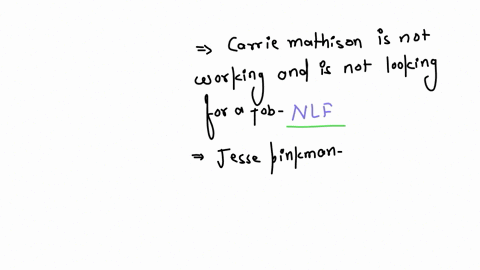 ⇒ Carrie mathison is not
working and is not looking
for a job- NLF
⇒ Jesse pinkman-